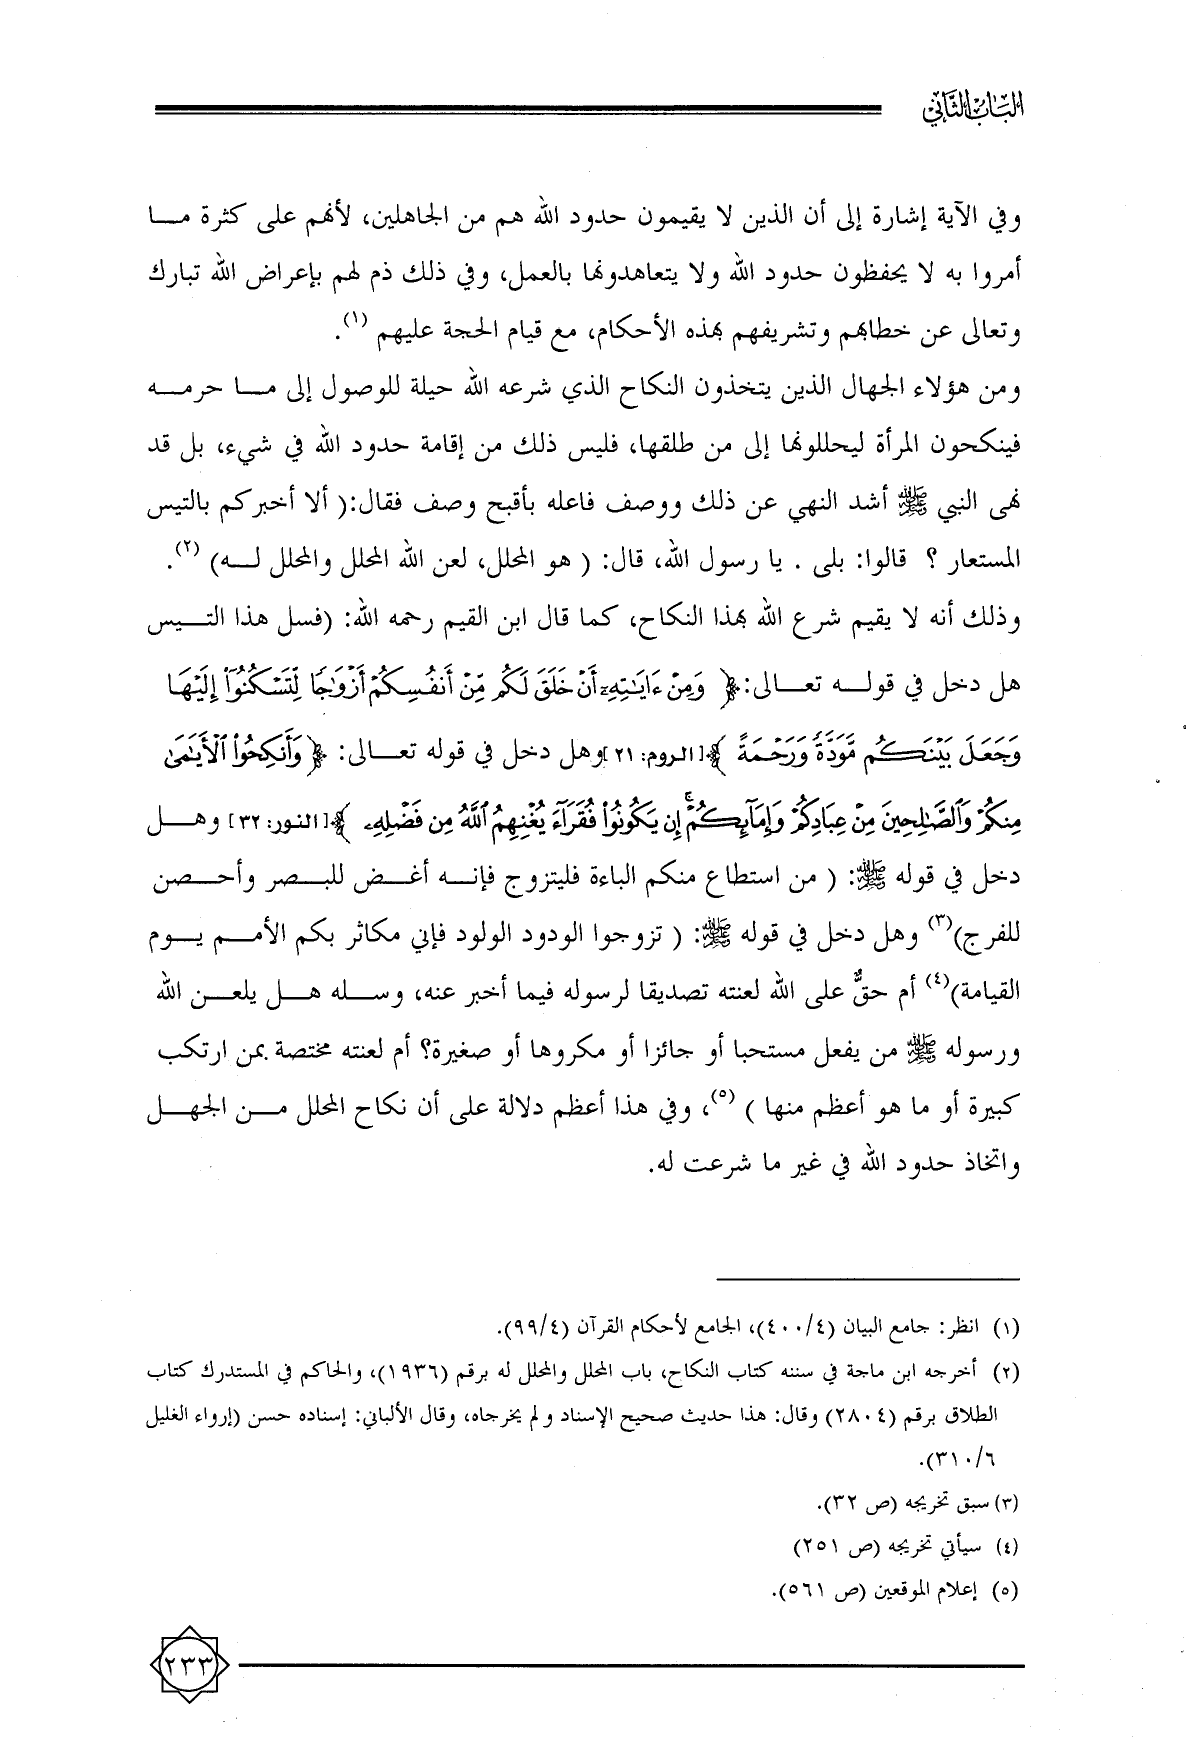 الباب الثاني
وفي الآية إشارة إلى أن الذين لا يقيمون حدود الله هم من الجاهلين، لأنهم على كثرة مـــا
أمروا به لا يحفظون حدود الله ولا يتعاهدونها بالعمل، وفي ذلك ذم لهم بإعراض الله تبارك
وتعالى عن خطابهم وتشريفهم بهذه الأحكام، مع قيام الحجة عليهم (١).
ومن هؤلاء الجهال الذين يتخذون النكاح الذي شرعه الله حيلة للوصول إلى مـــا حرمـــه
فينكحون المرأة ليحللونها إلى من طلقها، فليس ذلك من إقامة حدود الله في شيء، بل قد
نهى النبي ﷺ أشد النهي عن ذلك ووصف فاعله بأقبح وصف فقال:( ألا أخبركم بالتيس
المستعار ؟ قالوا: بلى . يا رسول الله، قال: ( هو المحلل، لعن الله المحلل والمحلل لـــه) (٢).
وذلك أنه لا يقيم شرع الله بهذا النكاح، كما قال ابن القيم رحمه الله: (فسل هذا التـــيس
هل دخل في قولـــه تعـــالى:﴿ وَمِنْ ءَايَٰتِهِۦٓ أَنْ خَلَقَ لَكُم مِّنْ أَنفُسِكُمْ أَزْوَٰجًا لِّتَسْكُنُوٓا۟ إِلَيْهَا
وَجَعَلَ بَيْنَكُم مَّوَدَّةً وَرَحْمَةً ﴾[الروم: ٢١]وهل دخل في قوله تعـــالى: ﴿ وَأَنكِحُوا۟ ٱلْأَيَٰمَىٰ
مِنكُمْ وَٱلصَّٰلِحِينَ مِنْ عِبَادِكُمْ وَإِمَآئِكُمْ ۚ إِن يَكُونُوا۟ فُقَرَآءَ يُغْنِهِمُ ٱللَّهُ مِن فَضْلِهِۦ ﴾[النور: ٣٢] وهـــل
دخل في قوله ﷺ: ( من استطاع منكم الباءة فليتزوج فإنـــه أغـــض للبـــصر وأحـــصن
للفرج)(٣) وهل دخل في قوله ﷺ: ( تزوجوا الودود الولود فإني مكاثر بكم الأمـــم يـــوم
القيامة)(٤) أم حقٌّ على الله لعنته تصديقا لرسوله فيما أخبر عنه، وســـله هـــل يلعـــن الله
ورسوله ﷺ من يفعل مستحبا أو جائزا أو مكروها أو صغيرة؟ أم لعنته مختصة بمن ارتكب
كبيرة أو ما هو أعظم منها ) (٥)، وفي هذا أعظم دلالة على أن نكاح المحلل مـــن الجهـــل
واتخاذ حدود الله في غير ما شرعت له.
(١) انظر: جامع البيان (٤٠٠/٤)، الجامع لأحكام القرآن (٩٩/٤).
(٢) أخرجه ابن ماجة في سننه كتاب النكاح، باب المحلل والمحلل له برقم (١٩٣٦)، والحاكم في المستدرك كتاب
الطلاق برقم (٢٨٠٤) وقال: هذا حديث صحيح الإسناد ولم يخرجاه، وقال الألباني: إسناده حسن (إرواء الغليل
٣١٠/٦).
(٣) سبق تخريجه (ص ٣٢).
(٤) سيأتي تخريجه (ص ٢٥١)
(٥) إعلام الموقعين (ص ٥٦١).
٢٣٣